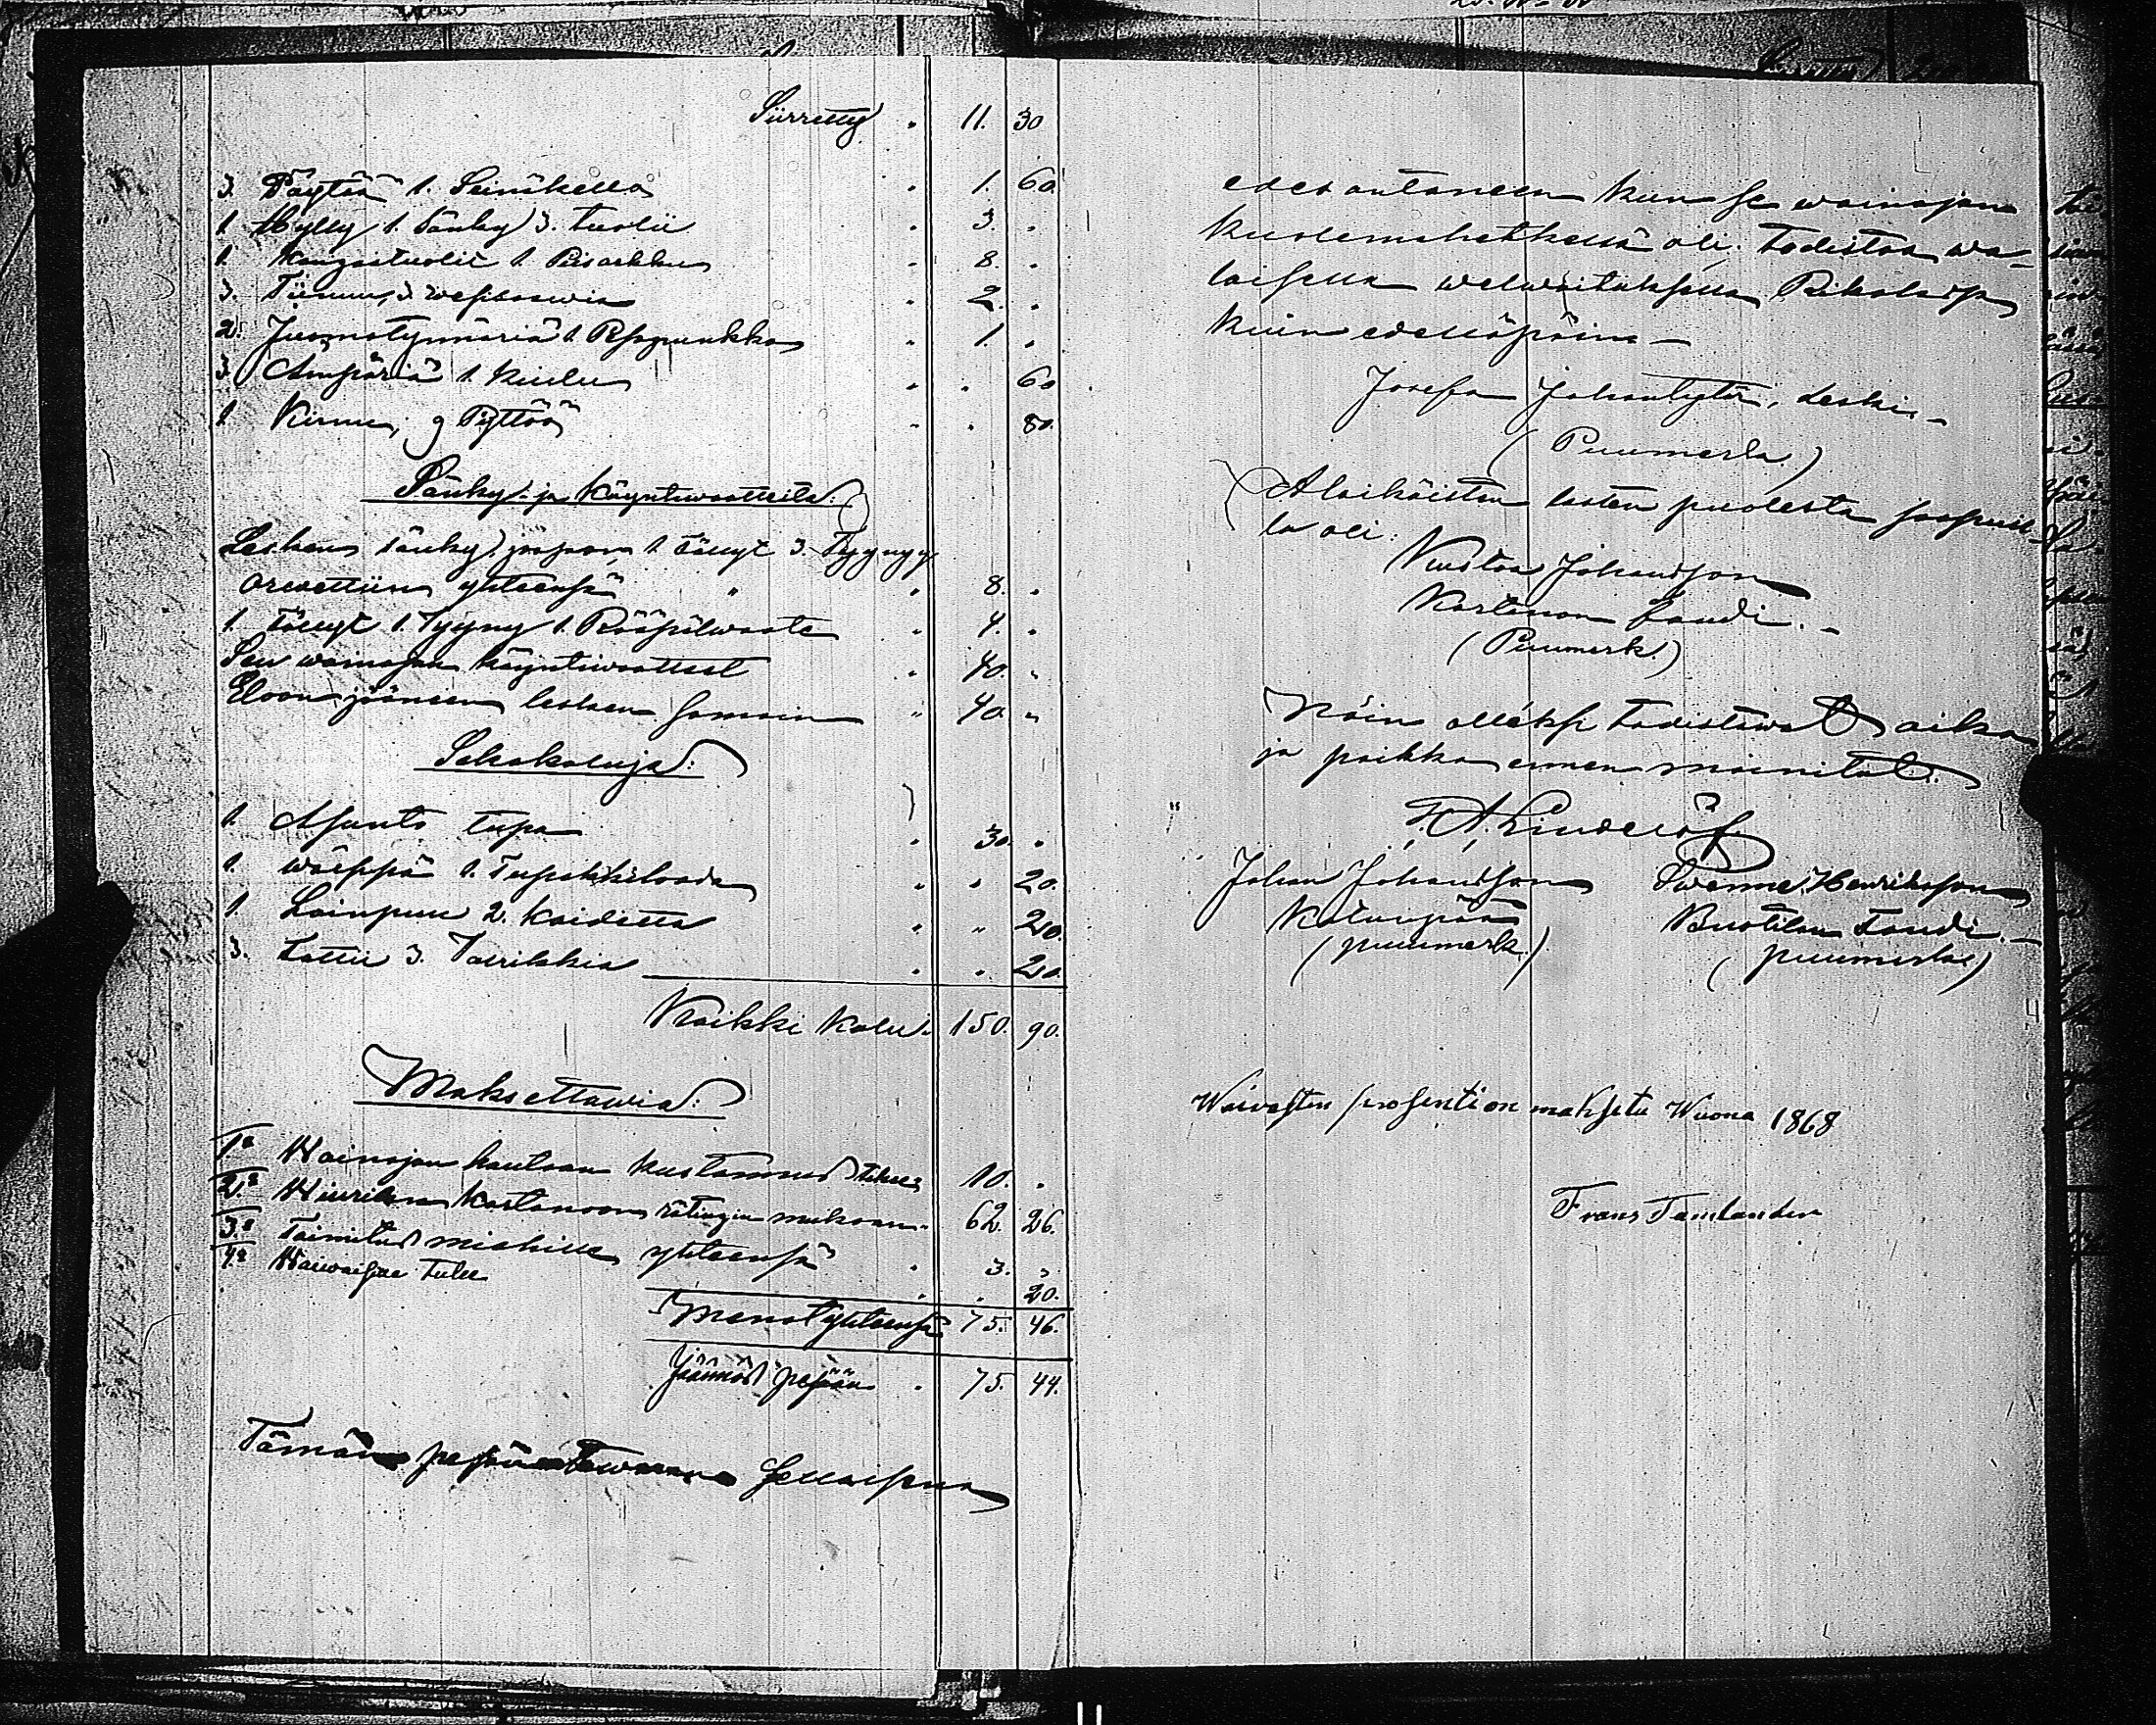 Siirretty " 11. 30
3. Pöytää 1. Seinäkello " 1. 60.
1 Hylly 1. Sänky 3. tuolii " 3. "
1 Kangastuolit 1. Piisarkku " 8. "
3. Tiinuu, 3. wesisaawia " 2. "
2. Juomatynnäriä 1. " 1. "
3. Ämpäriä 1. kiulu " " 60
1. Kirnu, 9 Pyttöö " " 80.
Sänky- ja Käyntiwaatteita:
Lesken sänky, 1. Täkyt 3. Tyynyy
arwattiin yhteensä " " 8. "
1. Täkyt 1. Tyyny 1. Rääsilwaate " 4. "
Sen wainajan käyntiwaatteet " 40. "
Eloon jääneen lesken samoin " 40. "
Sekakaluja:
1. Asunto tupa " 30. "
1. 1. Tupakkiloada " " 20.
1. Loinpuu 2. Kaidetta " " 20.
3. 3. " " 20.
Kaikki kalu. 150. 90.
Maksettawia:
1o Wainajan hautaan kustannus tekee 10. "
2.o Kartanoon rätingin mukaan " 62. 26.
3.o Toimitus miehille yhteensä " 3. "
4.o Waiwaisille tulee " " 20.
Menot yhteensä 75. 46.
Jäännös pesään " 75. 44.
Tämän pesän tawaran sellaisena
edesantaneen kuin se wainajan
kuolemahetkellä oli. Todistaa wa-
laisella welwoituksella
kuin edelläpäin –
Josefa Johantytär, Leski. –
(Puumerk.)
Alaikäisten lasten puolesta saapuil-
la oli:
Kustaa Johansson
Kartanon Landi. –
(Puumerk.)
Näin olleksi todistawat aika
ja paikka ennen mainitut.
F. A. Lindelöf
Johan Johansson Swenne Henriksson
Katuspää Buotilan Landi. –
(puumerk.) (puumerk.)
Waivasten prosenti on maksetu Wuona 1868
Frans Tamlander